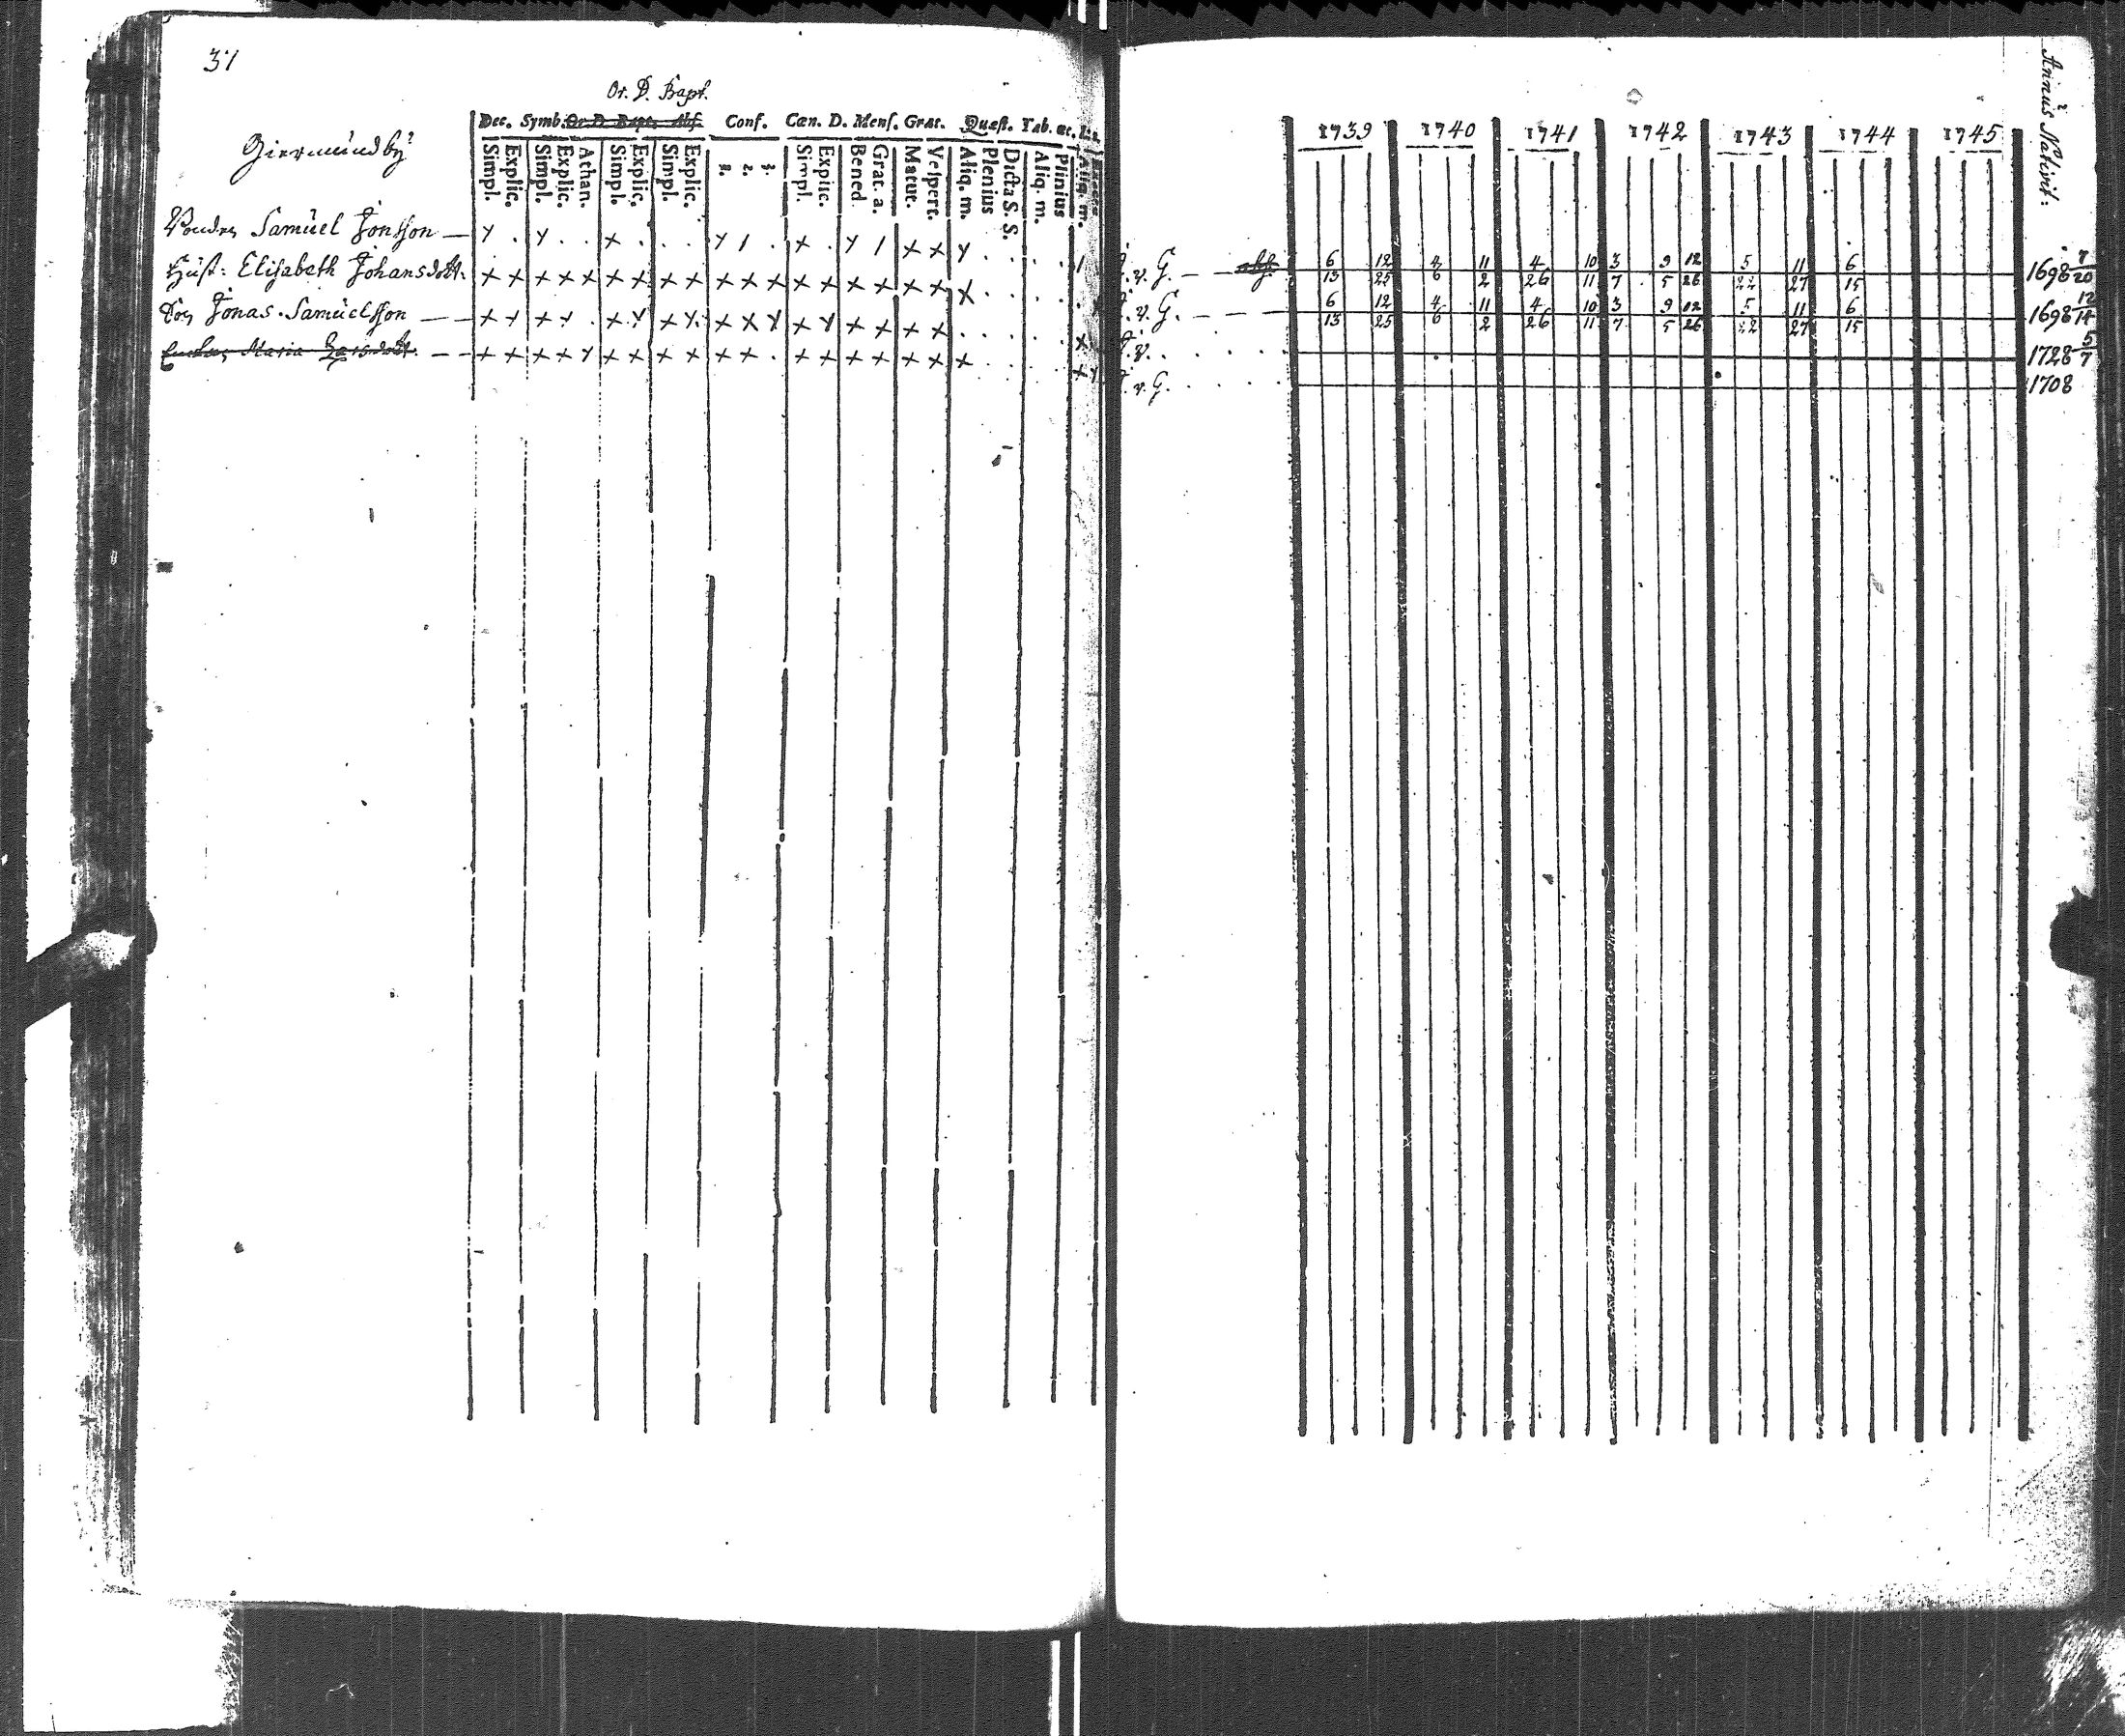 37
Or. D. Bapt.
Dec. Symb. Or. D. Bapt. Abs. Conf. Cœn. D. Mens. Grat. Quæst. Tab. œc.
Simpl. Explic. Simpl. Explic. Athan. Simpl. Explic. Simpl. Explic. 1. 2. 3. Simpl. Explic. Bened. Grat. a. Matut. Vespert. Aliq. m. Plenius Dicta S. S. Aliq. m. Plinius Aliq. m.
Giermundby
Samuel Jonsson — y . y . . x . . . y 1 . x . y 1 x x y . . . . 1
Hust: Elisabeth Johansdott. x x x x x x x x x x x x x x x x x x x . . . .
Jonas Samuelsson — — x x x y . x y x y x x y x y x x x x . . . . . x
Maria Larsdott. — — x x x x y x x x x x x . x x x x x x x . . . . x y
1739 1740 1741 1742 1743 1744 1745
Annus Nativit:
v. G. — abs. 6/13 12/25 4/6 11/2 4/26 10/11 3/7 9/5 12/26 5/22 11/27 6/15 1698 7/20
v. G. — — 6/13 12/25 4/6 11/2 4/26 10/11 3/7 9/5 12/26 5/22 11/27 6/15 1698 12/14
v. . . . . . 1728 5/7
v. G. . . . . . 1708